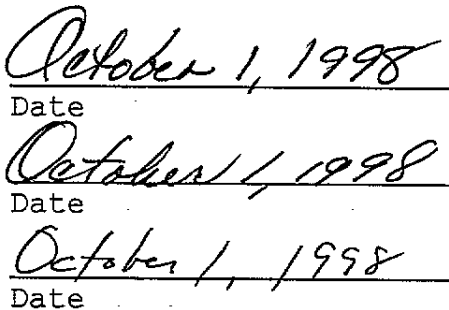 October 1, 1998
Date
October 1, 1998
Date
October 1, 1998
Date